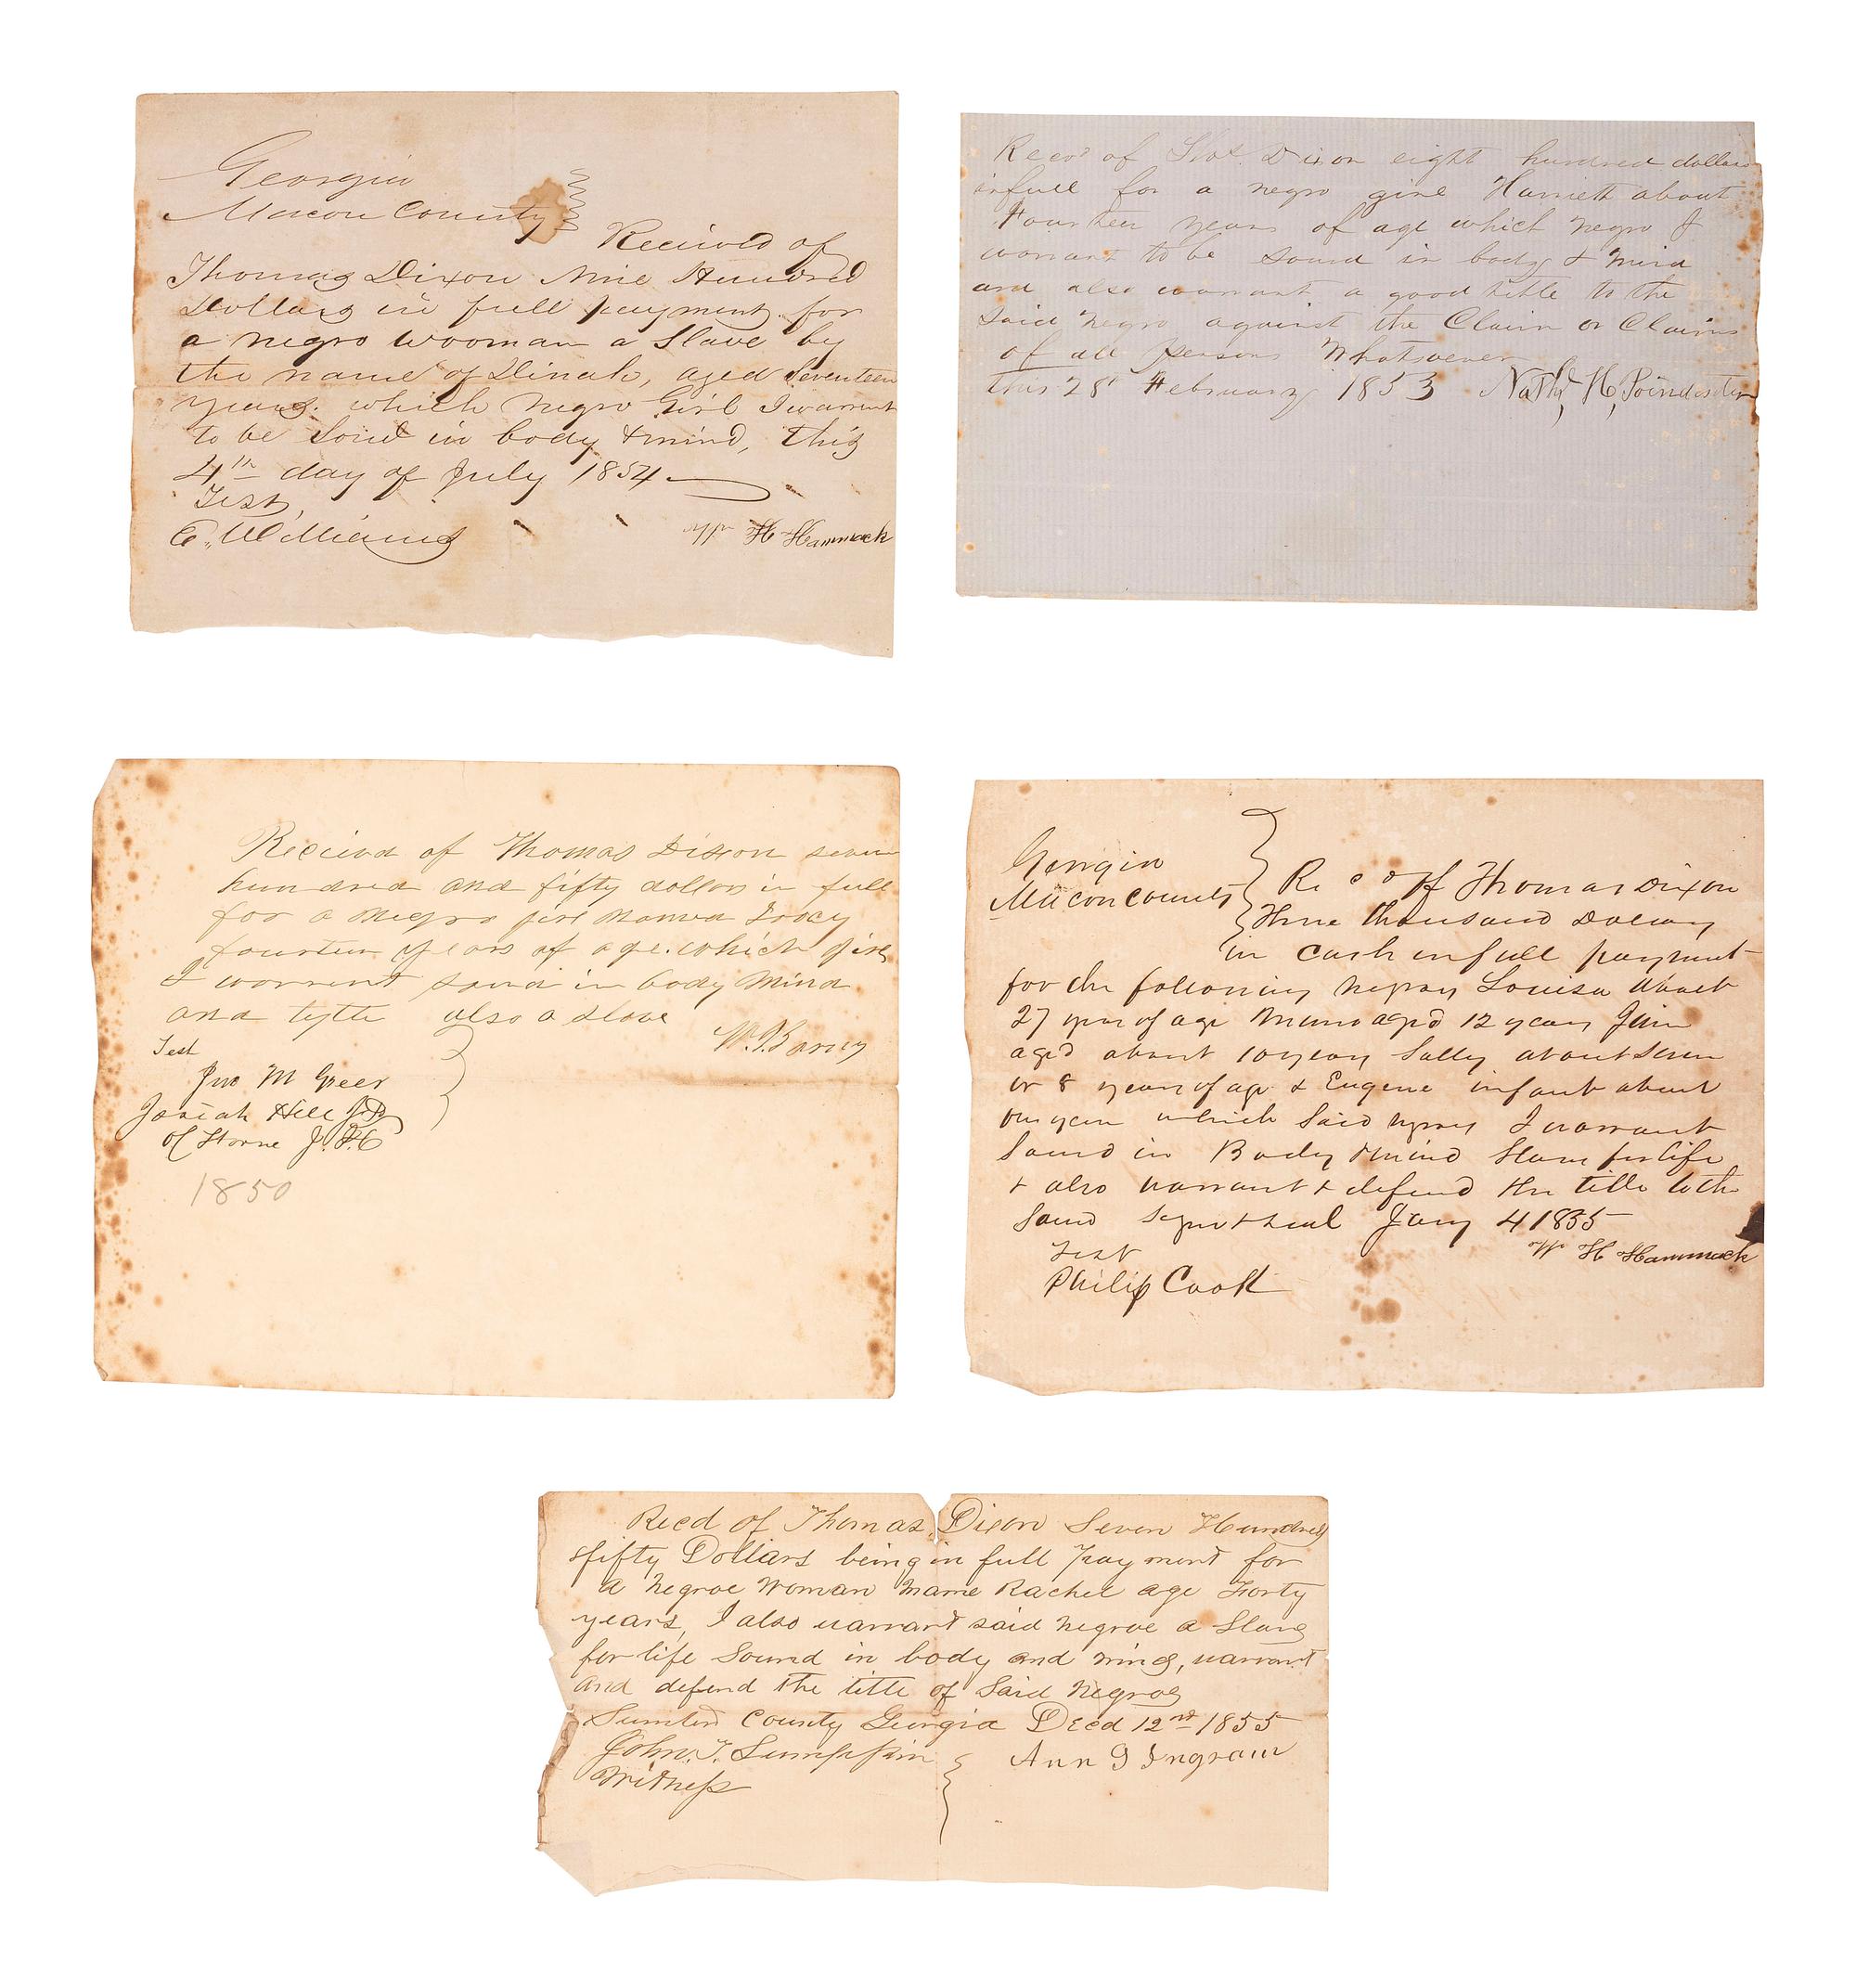 Georgia
Macon County
Recieved of
Thomas Dixon Nine Hundred
Dollars in full payment for
a negro wooman a Slave by
the name of Dinah, aged Seventeen
years. which negro Girl I warrent
to be Sound in body & mind, this
4th day of July 1854
Test,
E. Williams
Wm H Hammack
Recd of Thos. Dixon eight hundred dollars
infull for a negro girl Harriett about
Fourteen years of age which negro I
warrant to be sound in body & mind
and also warrant a good title to the
said negro against the Claim or Claims
of all persons Whatsoever
this 28th February 1853 Nathl, H, Poindexter
Recieved of Thomas Dixon seven
hundred and fifty dollars in full
for a negro girl named
fourteen years of age. which girl
I worrent sound in body mind
and tytle also a slave
W. J.
Test
Jno M Greer
Josiah Hill J.P.
1850
Georgia
Macon County
Recd of Thomas Dixon
Three thousand Dollars
in cash in full payment
for the following negroes Louisa about
27 years of age aged 12 years Jim
aged about 10 years Sally about seven
or 8 years of age & Eugene infant about
one year which said negroes I warrant
Sound in Body & mind Slaves for life
& also warrant & defend the title to the
Same Jany 4 1855
Test
Philip Cook
Wm H Hammack
Recd of Thomas Dixon Seven Hundred
&fifty Dollars being in full Payment for
a Negroe Woman Name Rachel age Forty
years, I also warrant said Negroe a Slave
for life Sound in body and mind, warrant
and defend the title of Said Negroe
Sumter County Georgia Decd 12nd 1855
John. T. Lumpkin
Witness
Ann G Ingram